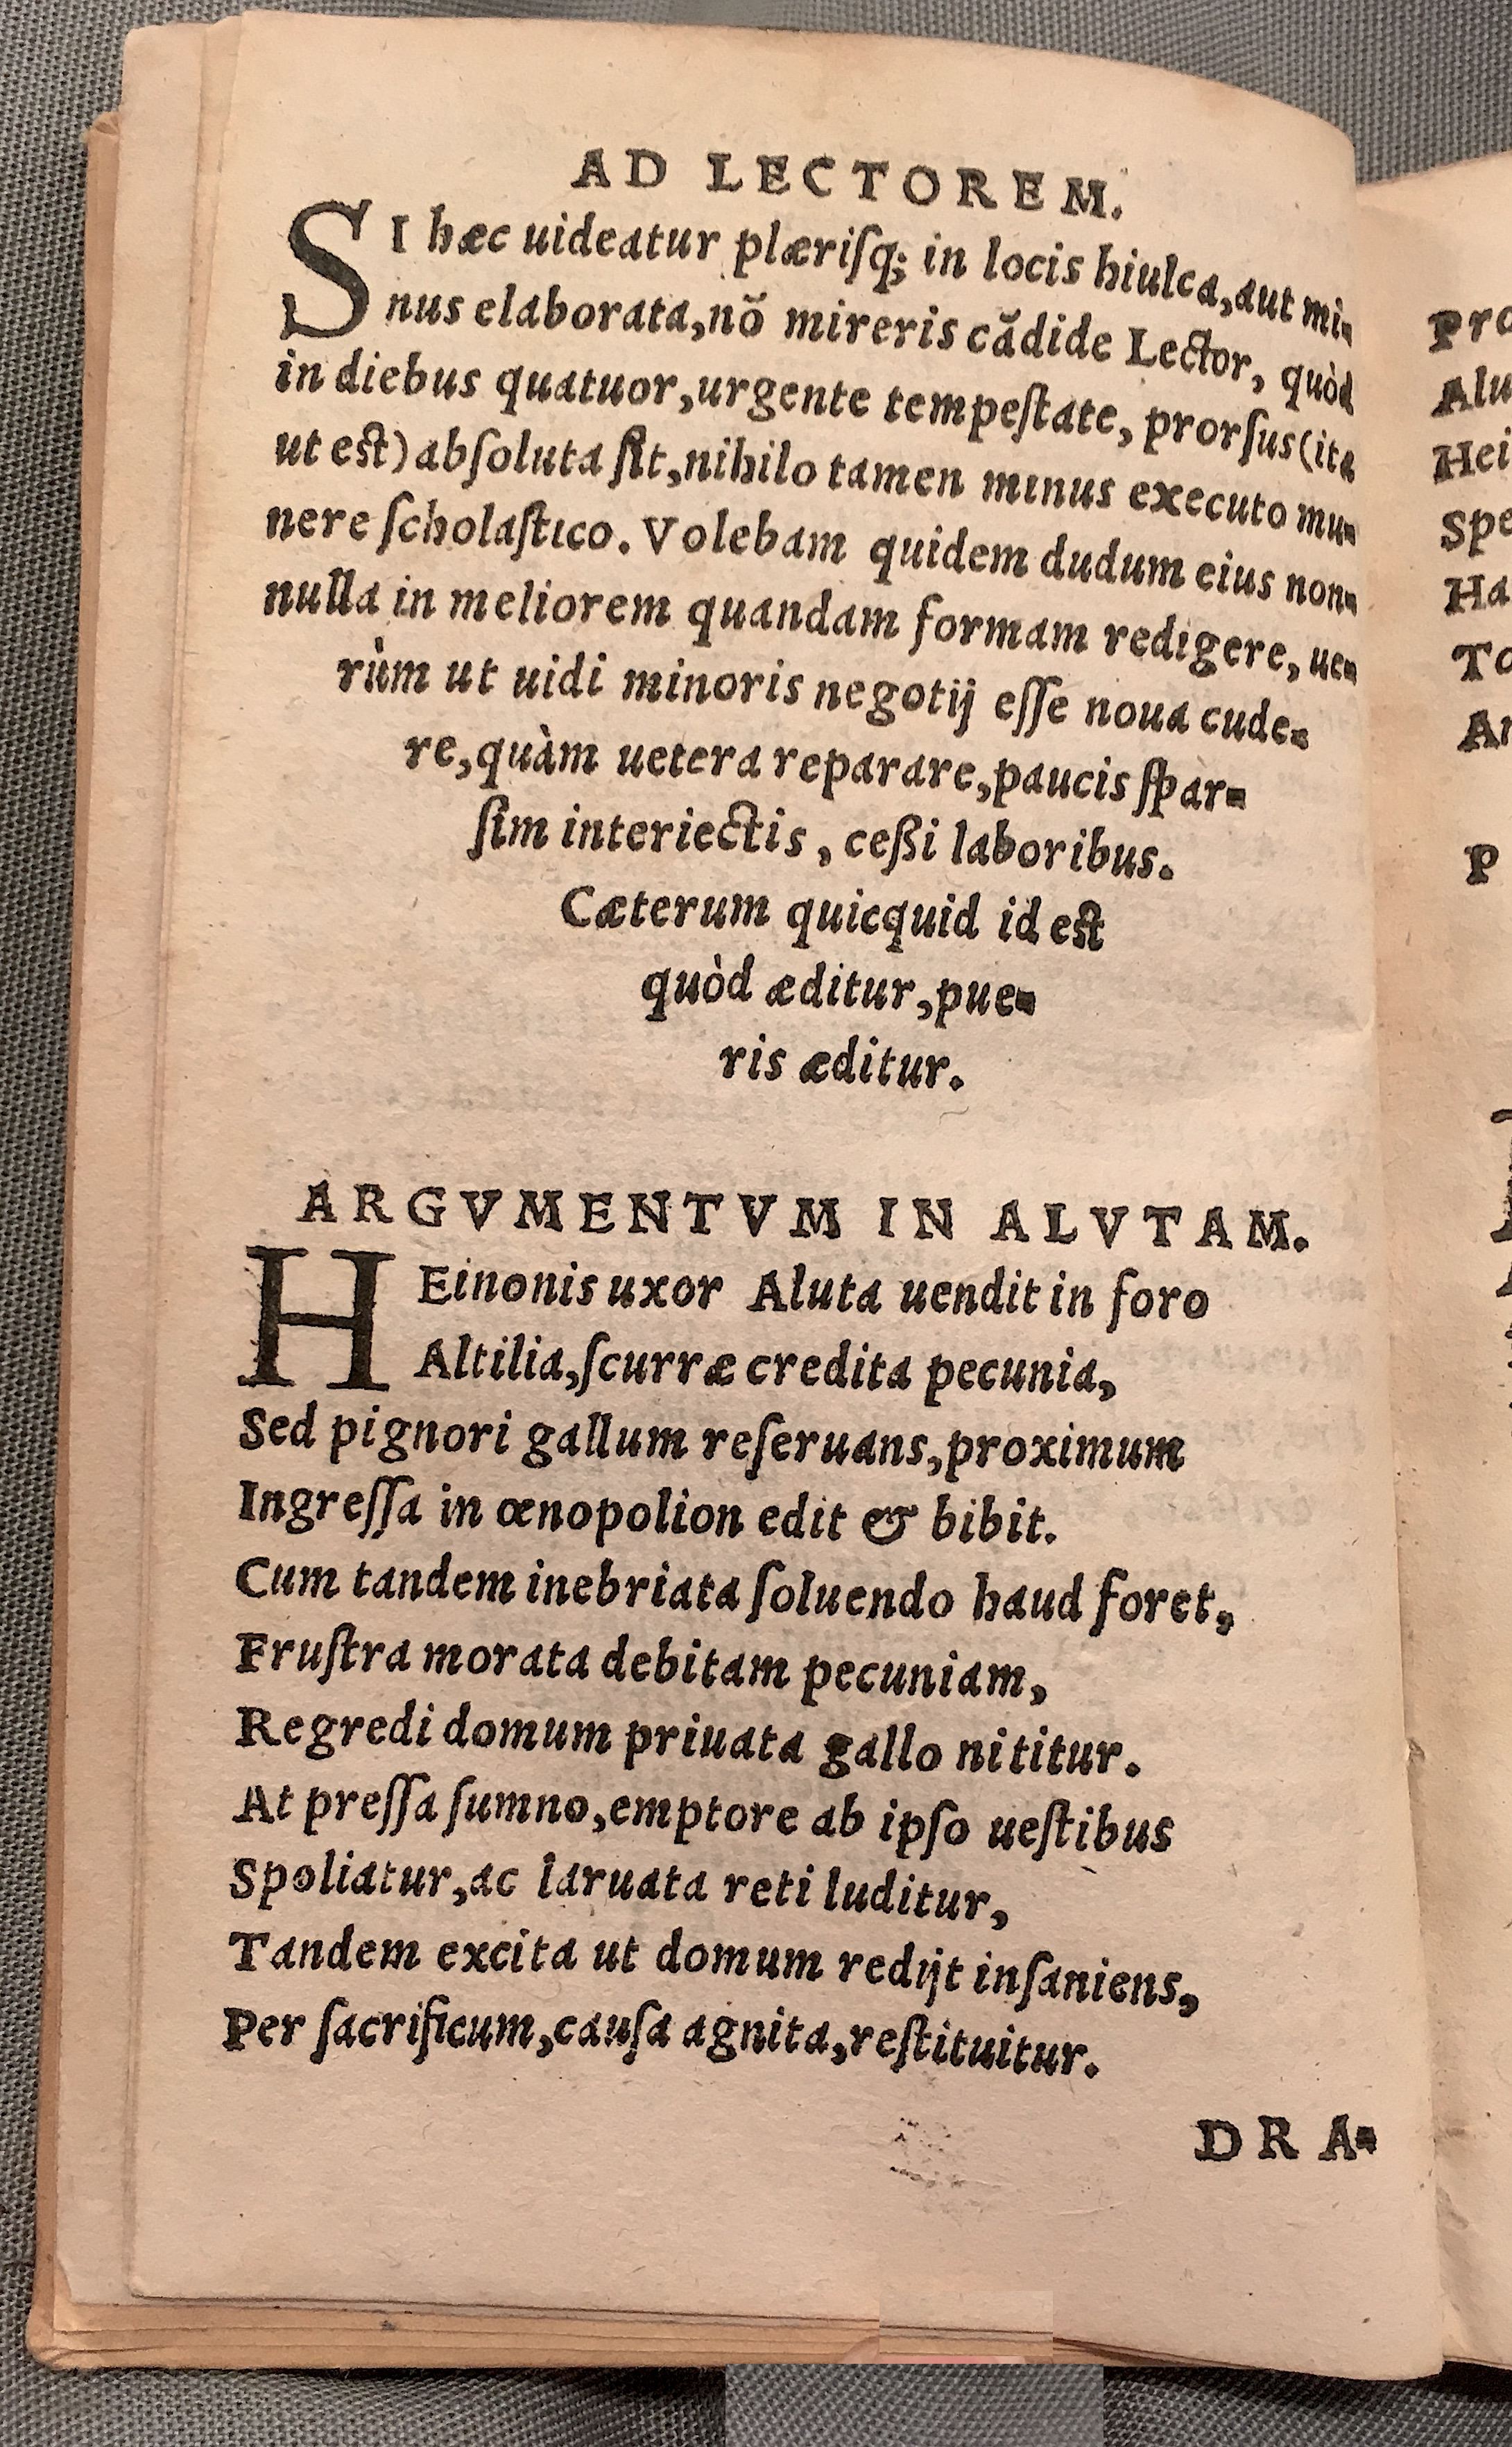 AD LECTOREM.
SI hæc uideatur plæriſq; in locis hiulca, aut mi-
nus elaborata, nõ mireris cãdide Lector, quòd
in diebus quatuor, urgente tempeſtate, prorſus (ita
ut est) abſoluta ſit, nihilo tamen minus executo mu-
nere ſcholaſtico. Volebam quidem dudum eius non-
nulla in meliorem quandam formam redigere, ue-
rùm ut uidi minoris negotij eſſe noua cude-
re, quàm uetera reparare, paucis ſpar-
ſim interiectis, ceßi laboribus.
Cæterum quicquid id est
quòd æditur, pue-
ris æditur.
ARGVMENTVM IN ALVTAM.
HEinonis uxor Aluta uendit in foro
Altilia, ſcurræ credita pecunia,
Sed pignori gallum reſeruans, proximum
Ingreſſa in œnopolion edit & bibit.
Cum tandem inebriata ſoluendo haud foret,
Fruſtra morata debitam pecuniam,
Regredi domum priuata gallo nititur.
At preſſa ſumno, emptore ab ipſo ueſtibus
Spoliatur, ac laruata reti luditur,
Tandem excita ut domum redijt inſaniens,
Per ſacrificum, cauſa agnita, reſtituitur.
DRA-
Alu
Hei
Spe
Ha
To
P